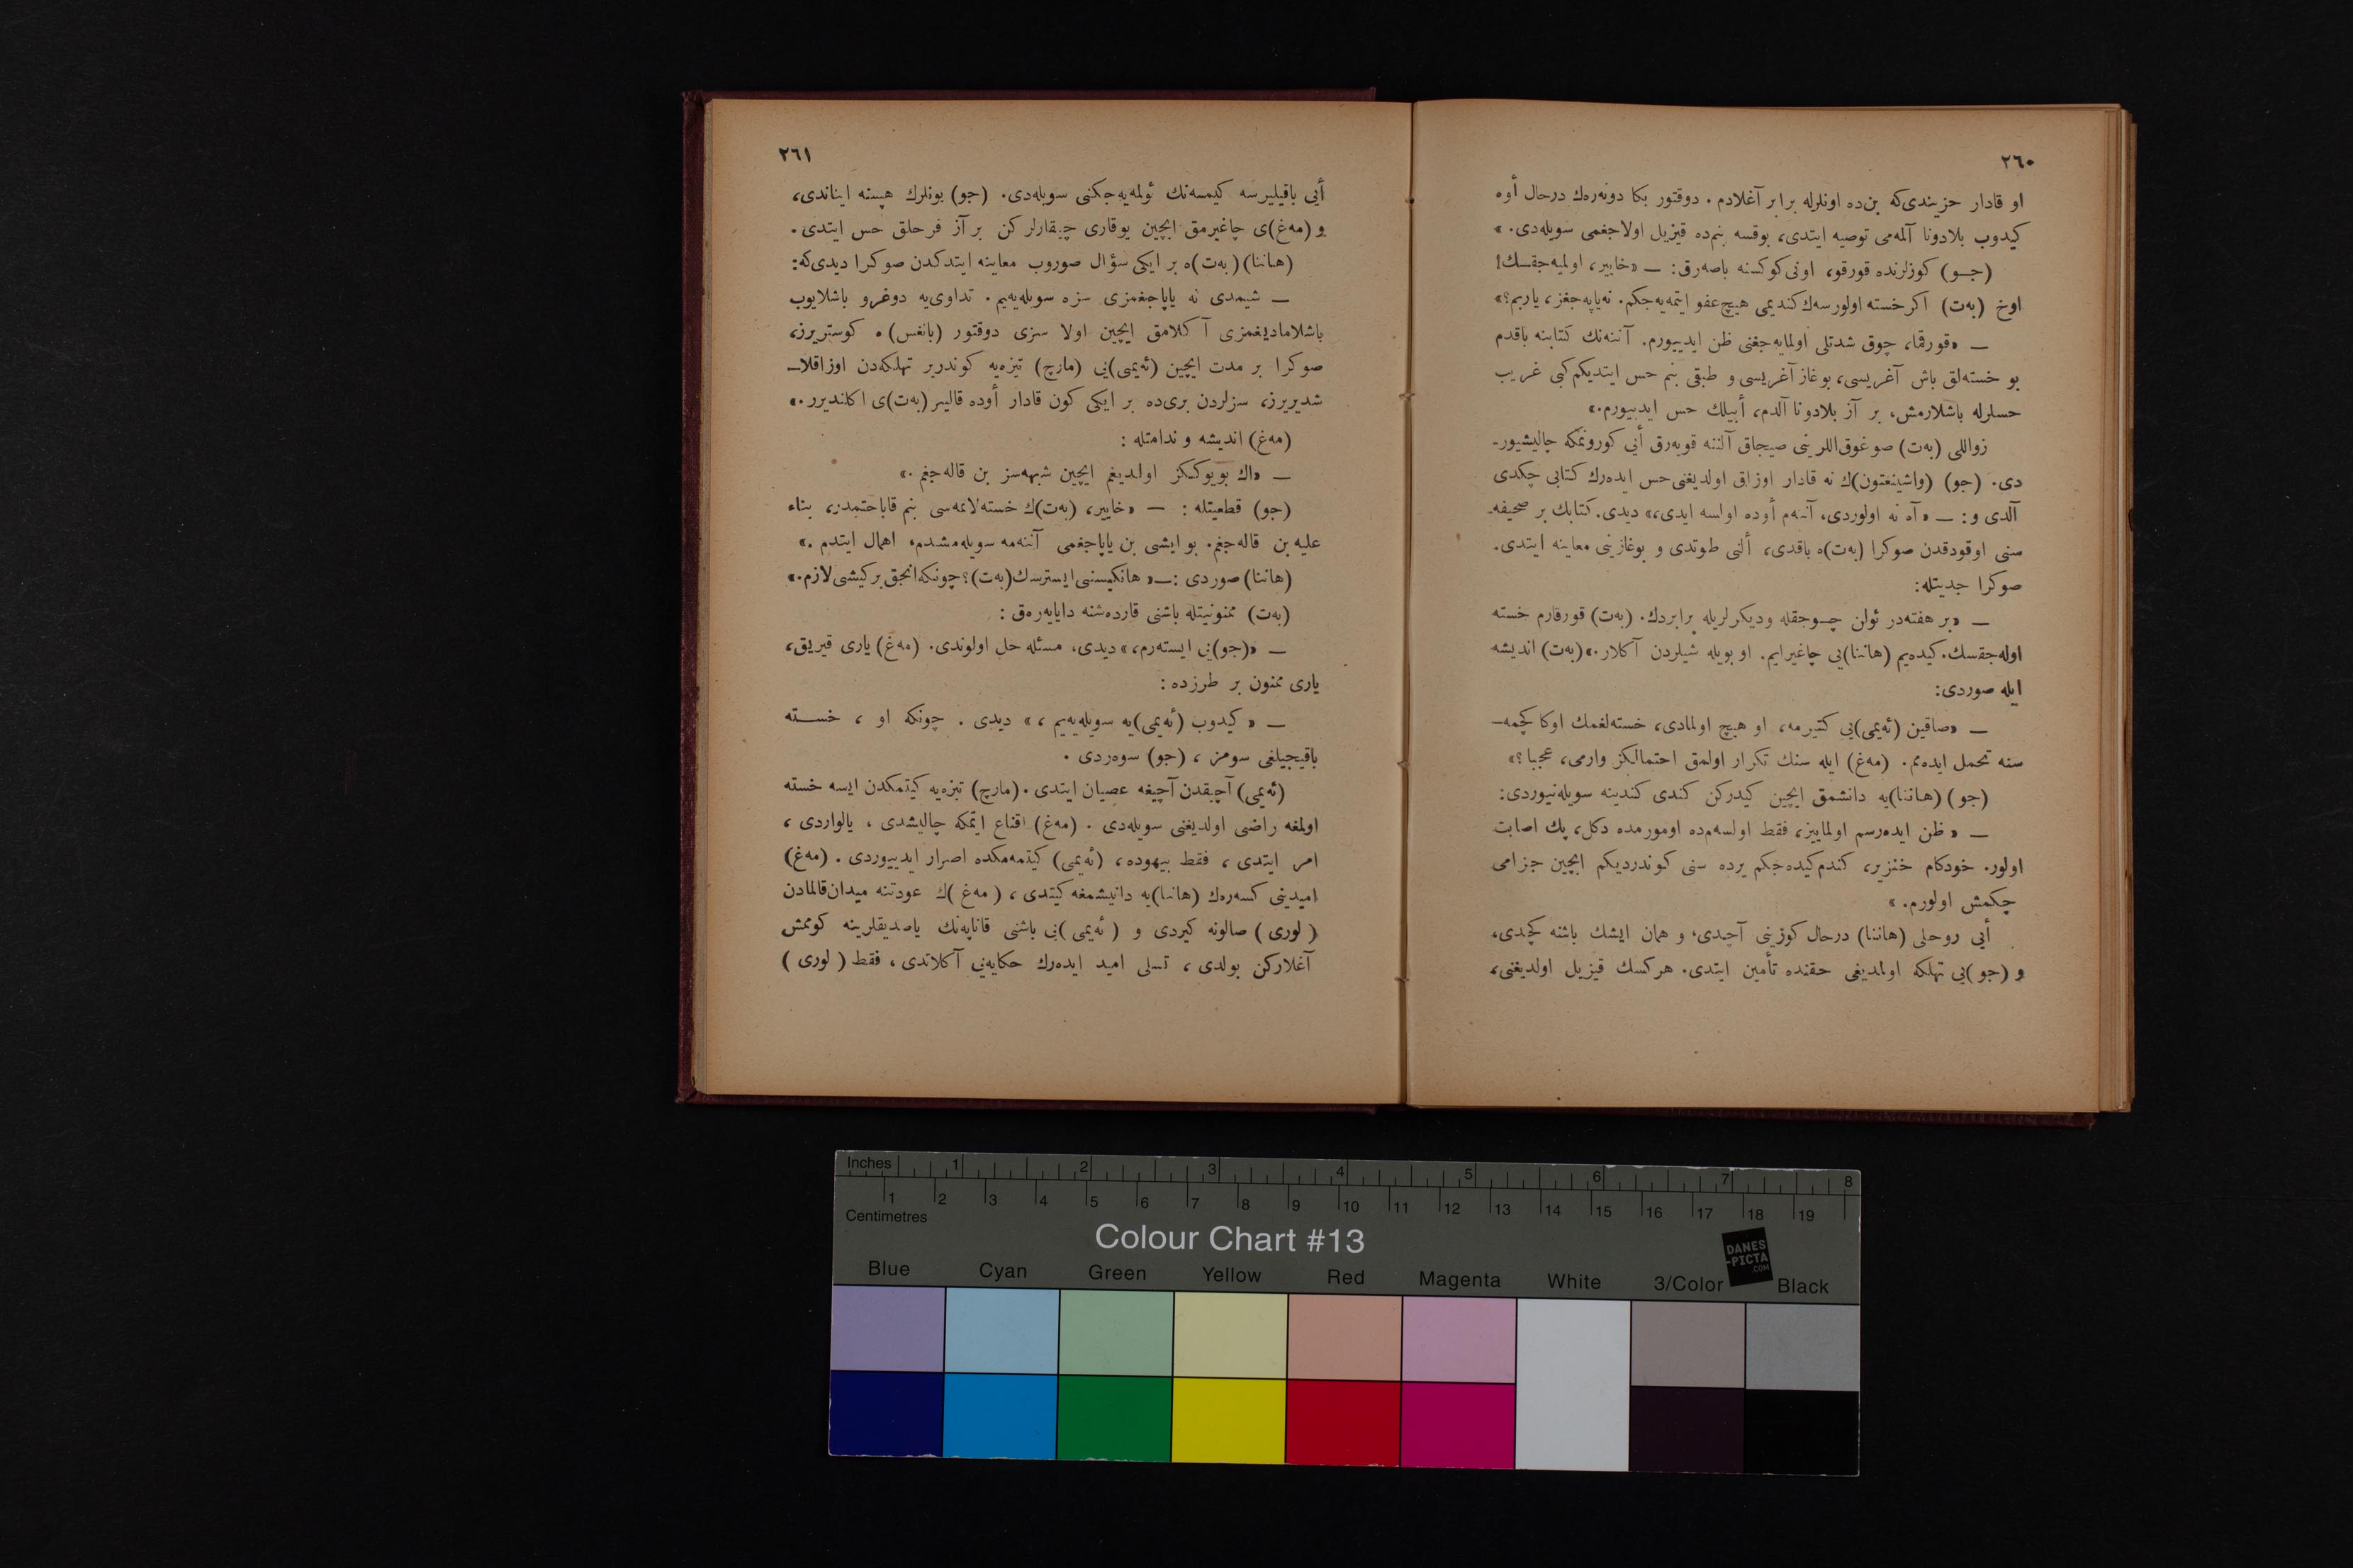 ٢٦٠
او قادار حزيندى‌كه بن‌ده اونلرله برابر آغلادم . دوقتور بكا دونه‌رەك درحال أوه
كيدوب بلادونا آلمه‌مى توصيه ايتدى، يوقسه بنم‌ده قيزيل اولاجغمى سويله‌دى. »
(جـو) كوزلرنده قورقو، اونى كوكسنه باصه‌رق: — «خايير، اولميه‌جقسك!
اوخ (به‌ت) اكر خسته اولورسه‌ك كنديمى هيچ عفو ايتمه‌يه‌جكم. نه‌ياپه‌جغز، ياربم؟»
— «قورقما، چوق شدتلى اولمايه‌جغنى ظن ايدييورم. آننه‌نك كتابنه باقدم
بو خسته‌لق باش آغريسى، بوغاز آغريسى و طبقى بنم حس ايتديكم كبى غريب
حسلرله باشلارمش، بر آز بلادونا آلدم، أييلك حس ايدييورم.»
زواللى (به‌ت) صوغوق اللرينى صيجاق آلننه قويه‌رق أيى كورونمكه چاليشيور-
دى. (جو) (واشينغتون)ك نه قادار اوزاق اولديغنى حس ايده‌رك كتابى چكدى
آلدى و: — « آه نه اولوردى، آننه‌م أوده اولسه ايدى،» ديدى. كتابك بر صحيفه-
سنى اوقودقدن صوكرا (به‌ت)ه باقدى، ألنى طوتدى و بوغازينى معاينه ايتدى.
صوكرا جديتله:
— «بر هفته‌در ئولن چـوجقله وديكرلريله برابردك. (به‌ت) قورقارم خسته
اوله‌جقسك. كيده‌يم (هاننا)يى چاغيرايم. او بويله شيلردن آكلار.» (به‌ت) انديشه
ايله صوردى:
— «صاقين (ئه‌يمى)يى كتيرمه، او هيچ اولمادى، خسته‌لغمك اوكا كچمه-
سنه تحمل ايده‌مم. (مه‌غ) ايله سنك تكرار اولمق احتمالكز وارمى، عجبا؟»
(جو) (هاننا)يه دانشمق ايچين كيدركن كندى كندينه سويله‌نيوردى:
— « ظن ايده‌رسم اولماييز، فقط اولسه‌م‌ده اومورمده دكل، پك اصابت
اولور. خودكام خنزير، كندم كيده‌جكم يرده سنى كوندرديكم ايچين جزامى
چكمش اولورم. »
أيى روحلى (هاننا) درحال كوزينى آچدى، و همان ايشك باشنه كچدى،
و (جو)يى تهلكه اولمديغى حقنده تأمين ايتدى. هركسك قيزيل اولديغنى،
٢٦١
أيى باقيليرسه كيمسه‌نك ئولمه‌يه‌جكنى سويله‌دى. (جو) بونلرك هپسنه ايناندى،
و (مه‌غ)ى چاغيرمق ايچين يوقارى چيقارلركن بر آز فرحلق حس ايتدى.
(هاننا) (به‌ت)ه بر ايكى سؤال صوروب معاينه ايتدكدن صوكرا ديدى‌كه:
— شيمدى نه ياپاجغمزى سزه سويله‌يه‌يم. تداوى‌يه دوغرو باشلايوب
باشلاماديغمزى آكلامق ايچين اولا سزى دوقتور (بانغس)ه كوستريرز،
صوكرا بر مدت ايچين (ئه‌يمى)يى (مارچ) تيزه‌يه كوندرير تهلكه‌دن اوزاقلا-
شديريرز، سزلردن برى‌ده بر ايكى كون قادار أوده قالير (به‌ت)ى اكلنديرر.»
(مه‌غ) انديشه و ندامتله :
— «اك بويوككز اولديغم ايچين شبهه‌سز بن قاله‌جغم.»
(جو) قطعيتله : — «خايير، (به‌ت)ك خسته‌لانمه‌سى بنم قاباحتمدر، بناء
عليه بن قاله‌جغم. بو ايشى بن ياپاجغمى آننه‌مه سويله‌مشدم، اهمال ايتدم.»
(هاننا) صوردى :—« هانكيمسنى ايسترسك (به‌ت)؟ چونكه انجق بر كيشى لازم.»
(به‌ت) ممنونيتله باشنى قارده‌شنه دايايه‌ره‌ق :
— «(جو)يى ايسته‌رم،» ديدى، مسئله حل اولوندى. (مه‌غ) يارى قيريق،
يارى ممنون بر طرزده :
— « كيدوب (ئه‌يمى)يه سويله‌يه‌ييم، » ديدى . چونكه او ، خســته
باقيجيلغى سومز ، (جو) سوه‌ردى .
(ئه‌يمى) آچيقدن آچيغه عصيان ايتدى. (مارچ) تيزه‌يه كيتمكدن ايسه خسته
اولمغه راضى اولديغنى سويله‌دى . (مه‌غ) اقناع ايتمكه چاليشدى ، يالواردى ،
امر ايتدى ، فقط بيهوده، (ئه‌يمى) كيتمه‌مكده اصرار ايدييوردى . (مه‌غ)
اميدينى كسه‌ره‌ك (هاننا)يه دانيشمغه كيتدى ، (مه‌غ)ك عودتنه ميدان قالمادن
(لورى) صالونه كيردى و (ئه‌يمى)يى باشنى قاناپه‌نك ياصديقلرينه كوممش
آغلاركن بولدى ، تسلى اميد ايده‌رك حكايه‌يى آكلاتدى ، فقط (لورى)
Inches 1 2 3 4 5 6 7 8
1 2 3 4 5 6 7 8 9 10 11 12 13 14 15 16 17 18 19
Centimetres
Colour Chart #13
DANES
-PICTA
.COM
Blue Cyan Green Yellow Red Magenta White 3/Color Black